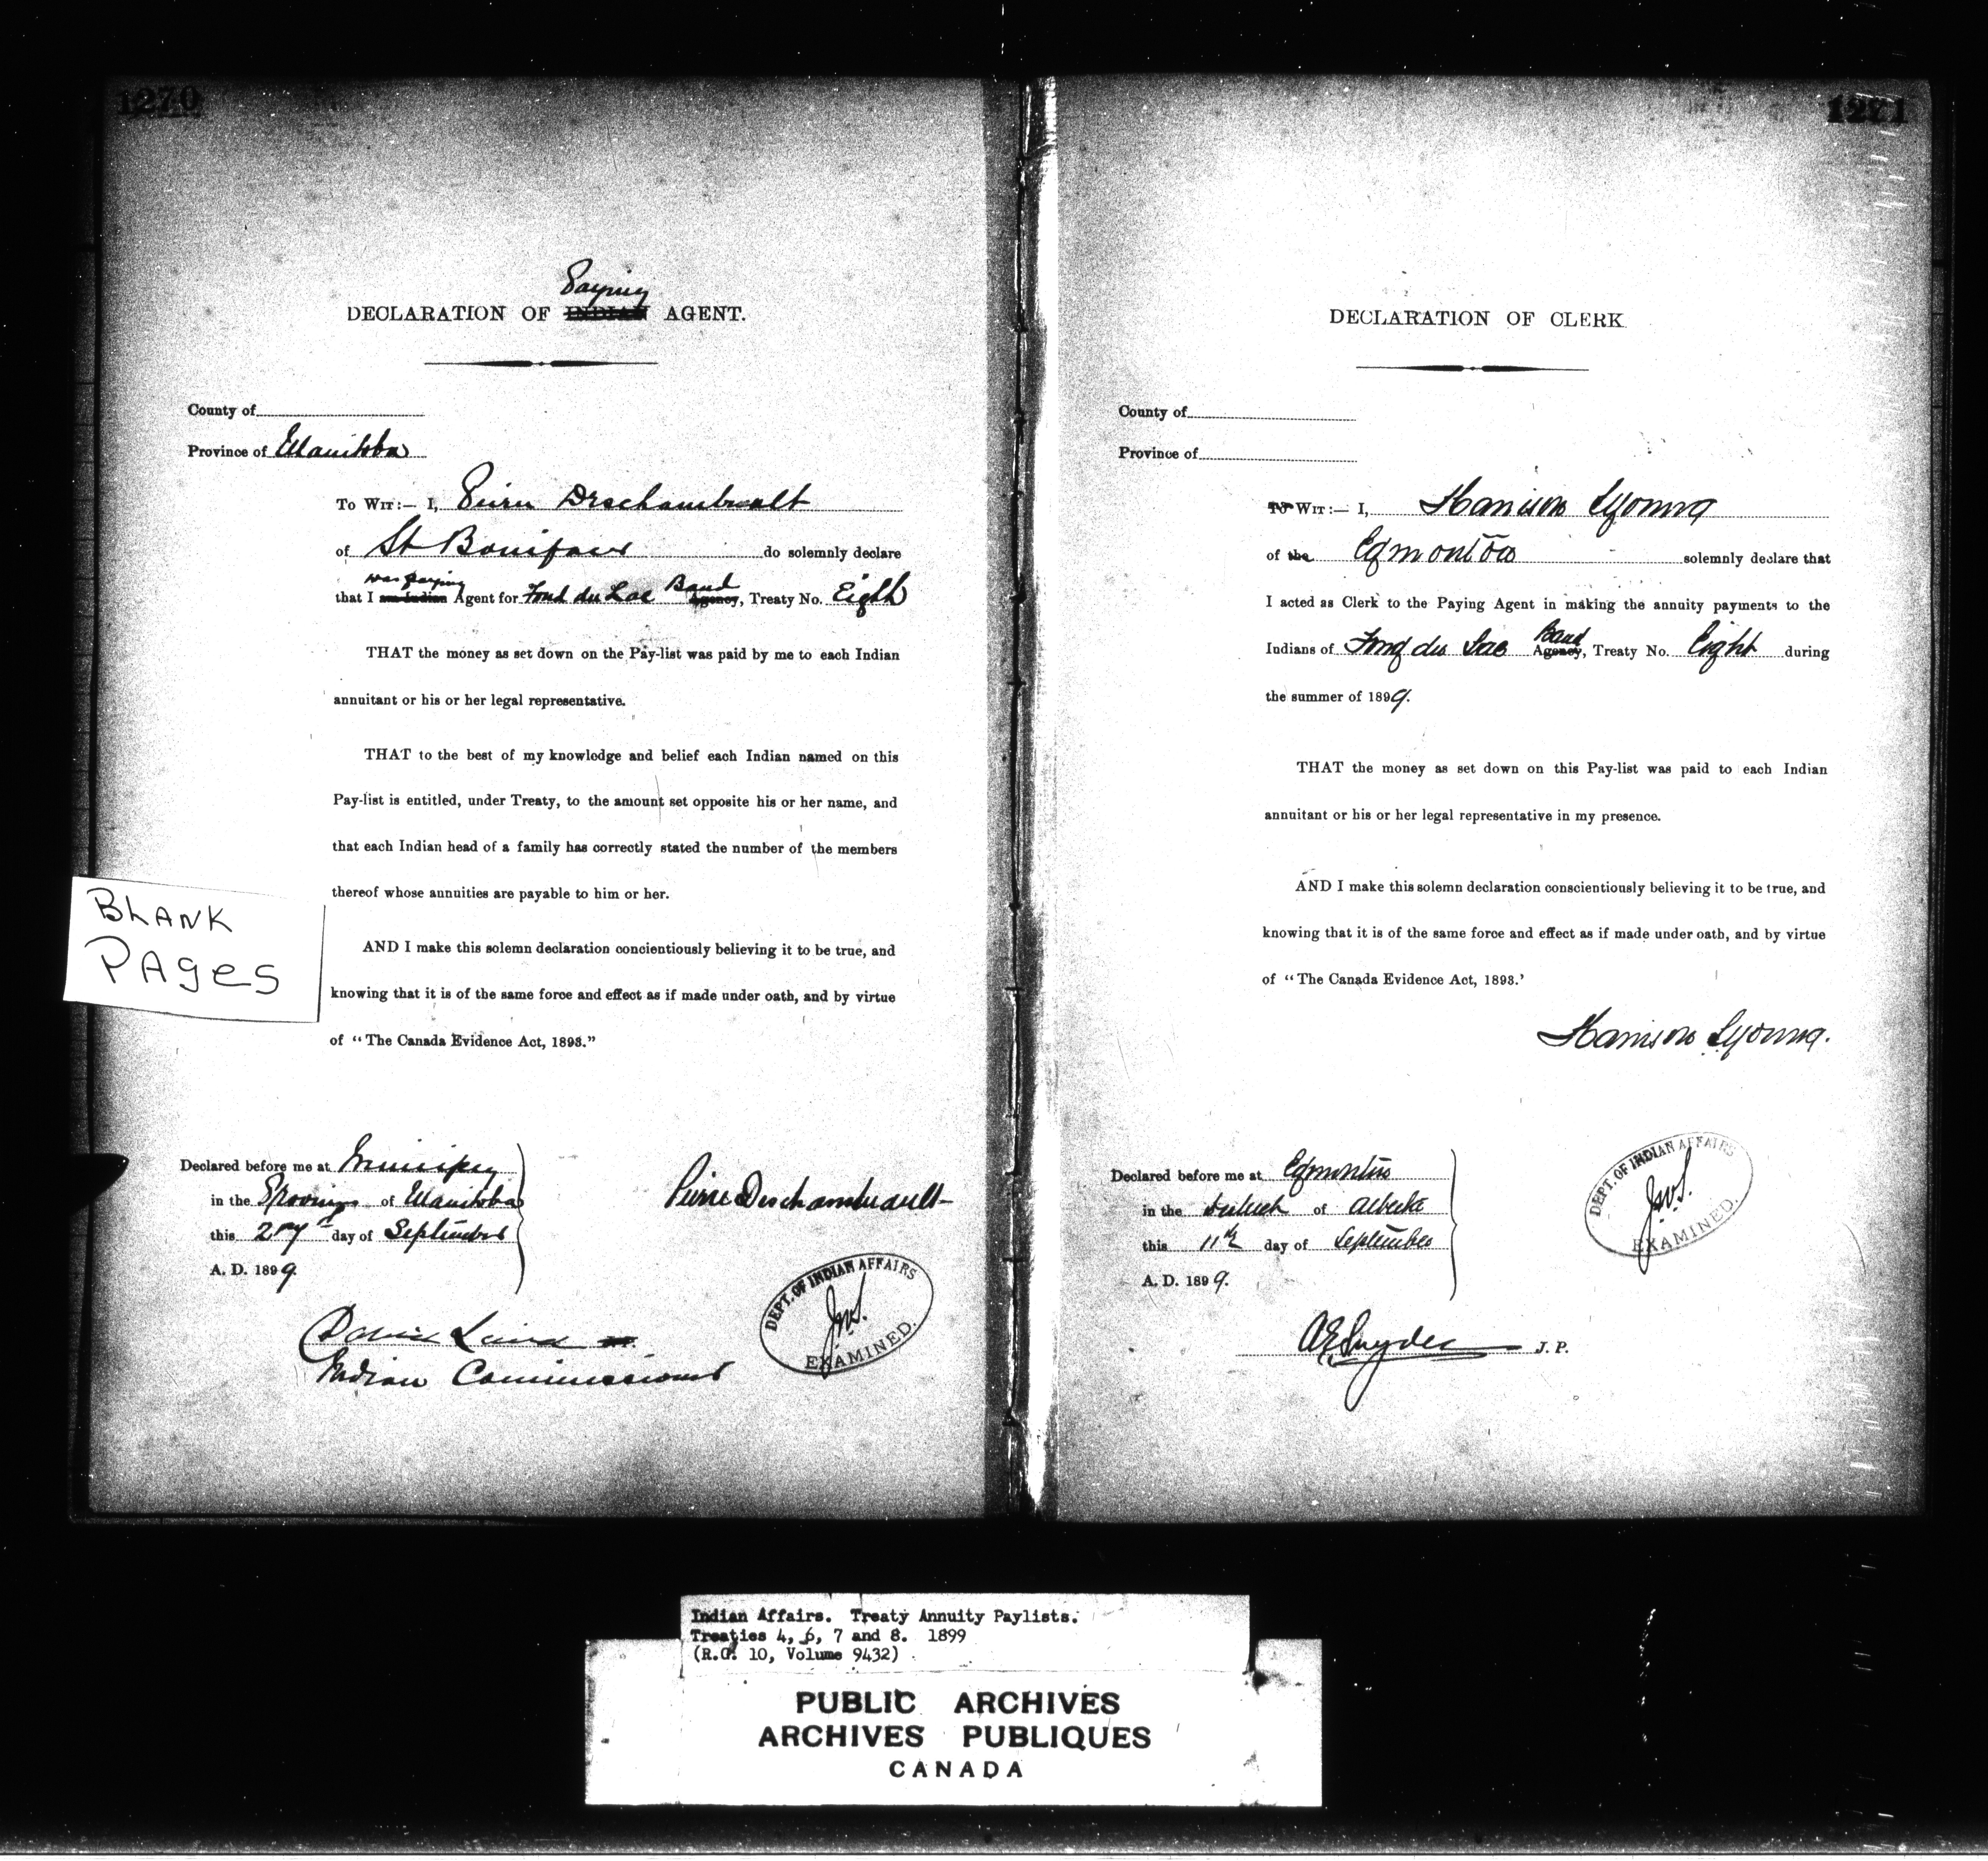 1270
Paying
DECLARATION OF INDIAN AGENT.
County of
Province of Manitoba
To Wit:— I, Pierre Deschambeault
of St Boniface do solemnly declare
was paying Band
that I am Indian Agent for Fond du Lac Agency, Treaty No. Eighth
THAT the money as set down on the Pay-list was paid by me to each Indian
annuitant or his or her legal representative.
THAT to the best of my knowledge and belief each Indian named on this
Pay-list is entitled, under Treaty, to the amount set opposite his or her name, and
that each Indian head of a family has correctly stated the number of the members
thereof whose annuities are payable to him or her.
AND I make this solemn declaration concientiously believing it to be true, and
knowing that it is of the same force and effect as if made under oath, and by virtue
of "The Canada Evidence Act, 1893."
BLANK
PAges
Declared before me at Winnipeg
in the Province of Manitoba
this 27th day of September
A. D. 1899.
Pierre Deschambeault
David Laird
Indian Commissioner
DEPT. OF INDIAN AFFAIRS
EXAMINED.
1271
DECLARATION OF CLERK
County of
Province of
To Wit:— I, Harrison Young
of the Edmonton solemnly declare that
I acted as Clerk to the Paying Agent in making the annuity payments to the
Band
Indians of Fond du Lac Agency, Treaty No. Eight during
the summer of 1899.
THAT the money as set down on this Pay-list was paid to each Indian
annuitant or his or her legal representative in my presence.
AND I make this solemn declaration conscientiously believing it to be true, and
knowing that it is of the same force and effect as if made under oath, and by virtue
of "The Canada Evidence Act, 1893.'
Harrison S Young.
Declared before me at Edmonton
in the District of Alberta
this 11th day of September
A. D. 1899.
DEPT. OF INDIAN AFFAIRS
EXAMINED.
Snyder J. P.
Indian Affairs. Treaty Annuity Paylists.
Treaties 4, 6, 7 and 8. 1899
(R.G. 10, Volume 9432)
PUBLIC ARCHIVES
ARCHIVES PUBLIQUES
CANADA